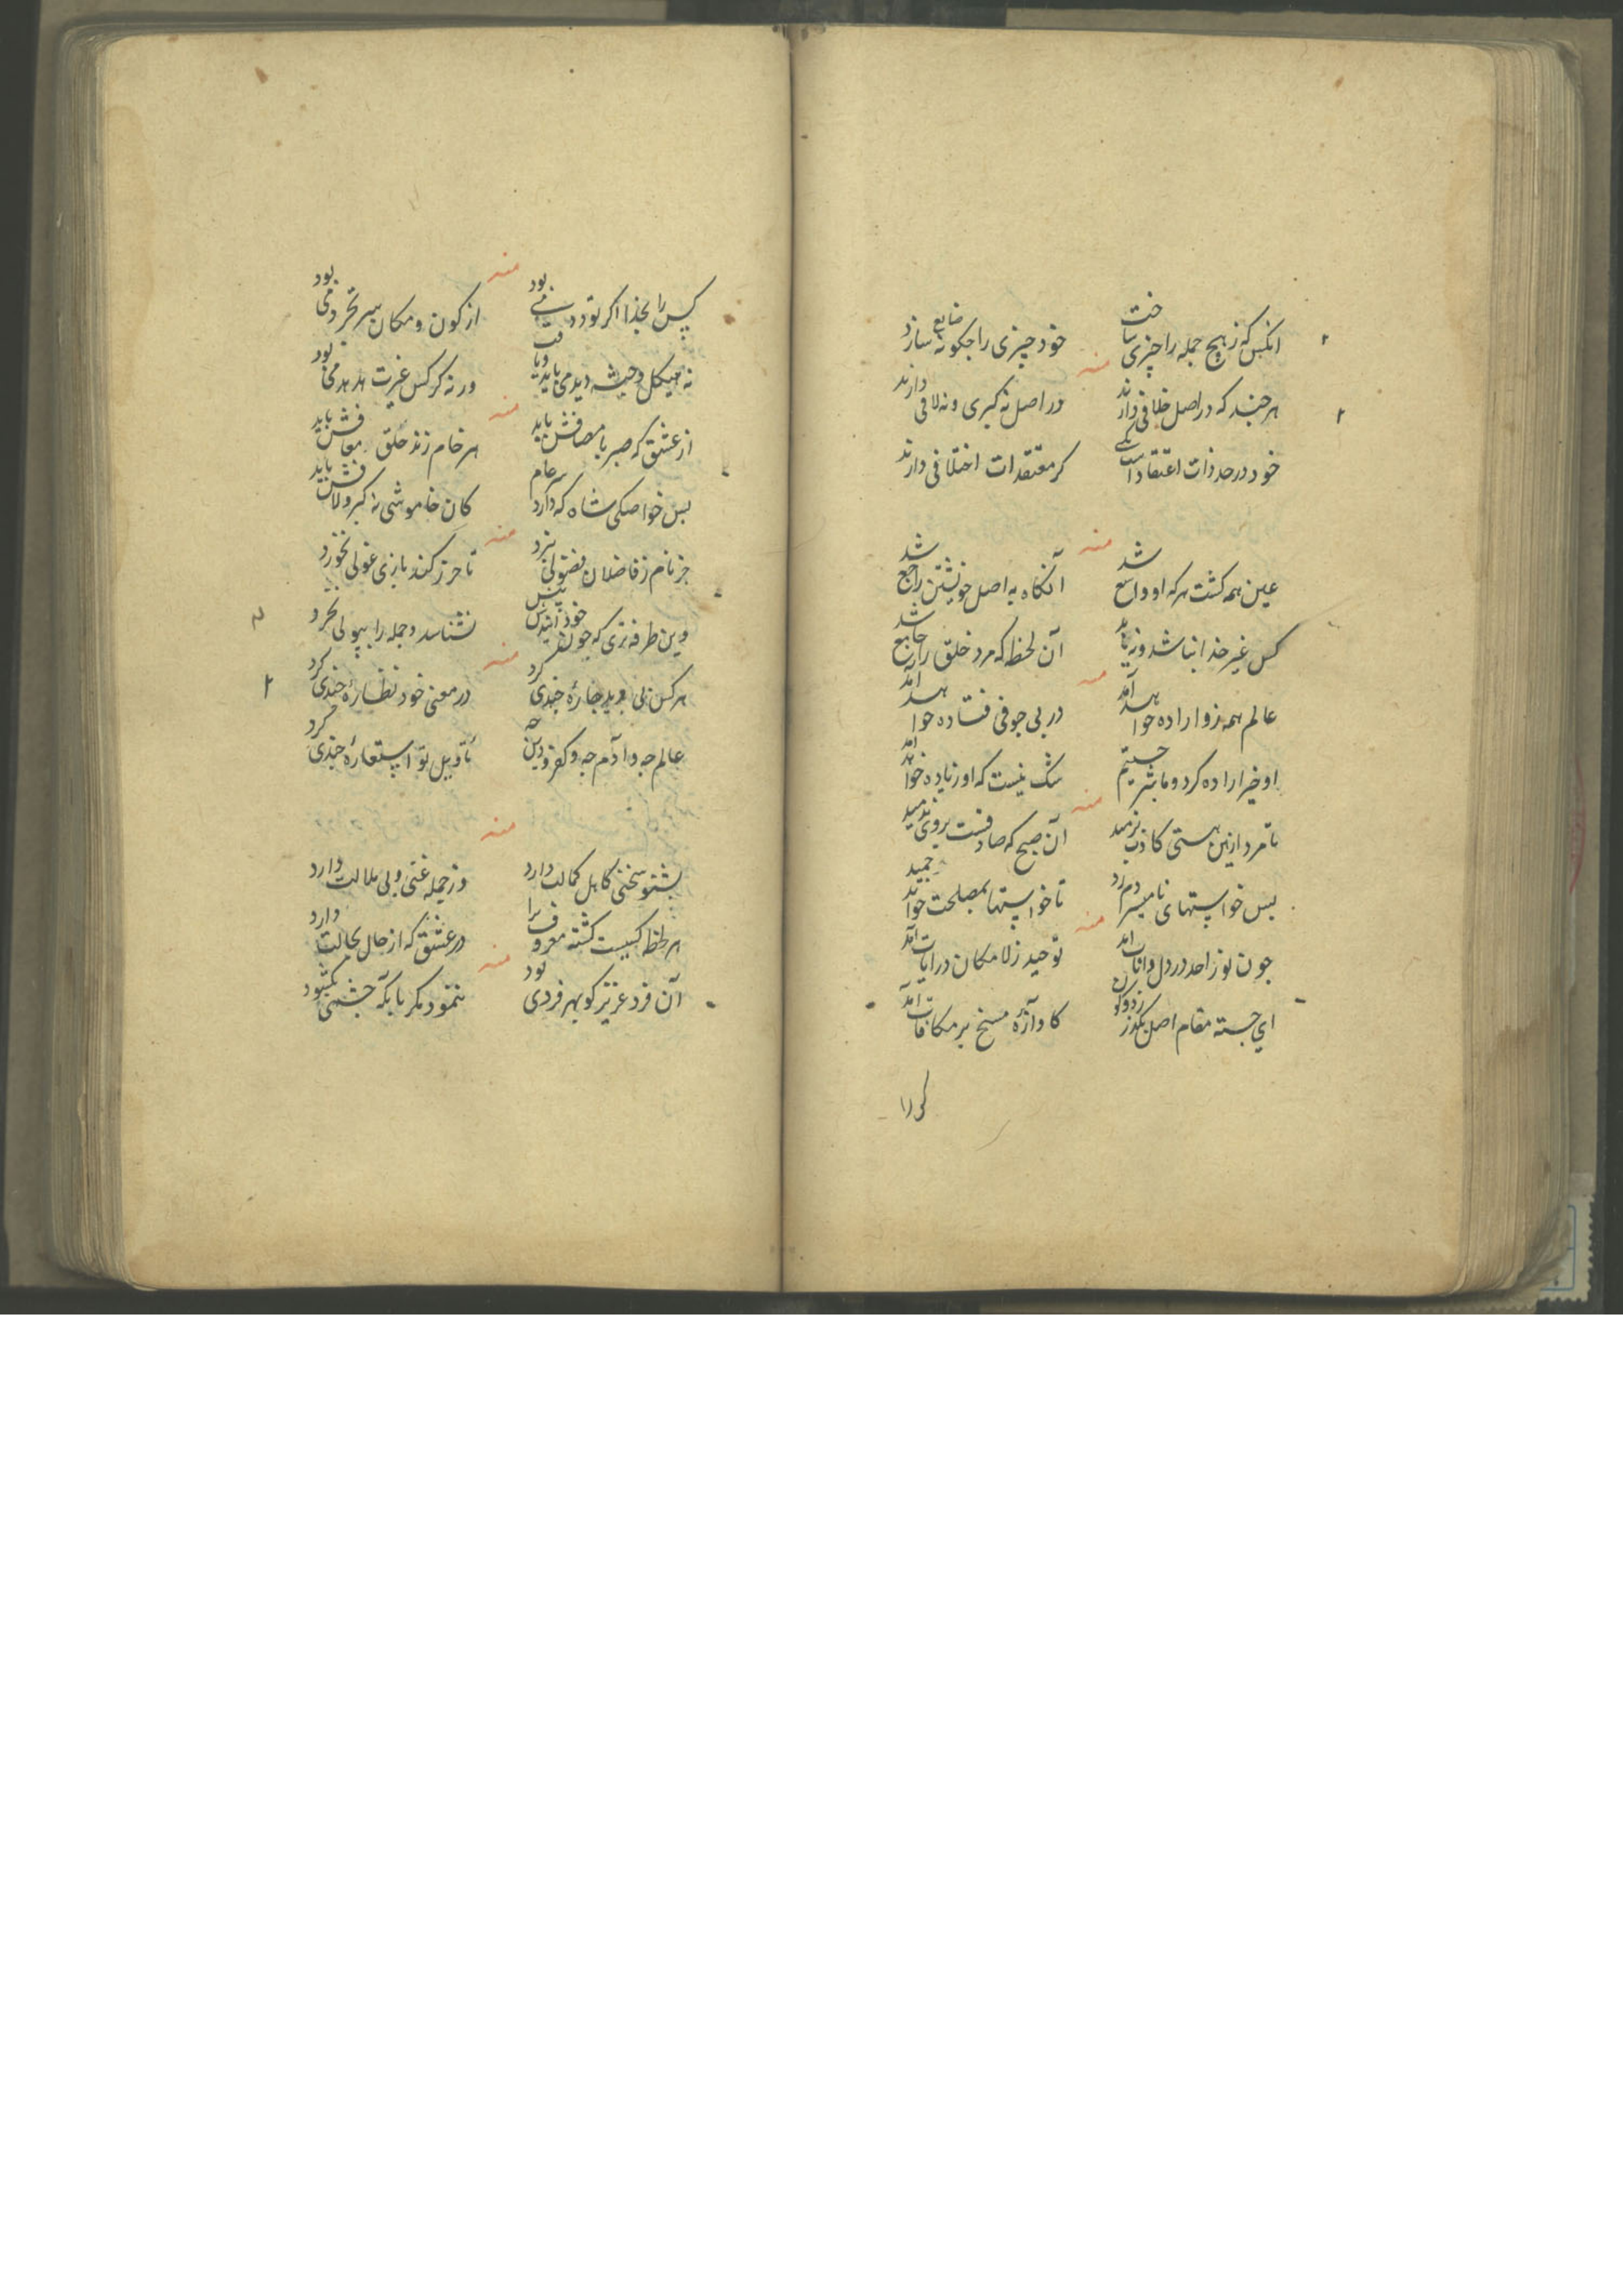 انکس که زهیچ جمله را چیزی ساخت خود چیزی را جکونه ضایع سازد
منه
هر چند که در اصل خلافی دارند در اصل نه کبری و نه لافی دارند
خود در حد ذات اعتقاد است یکی کر معتقدات اختلافی دارند
منه
عین همه کشت هر که او واسع شد آنکاه به اصل خویشتن راجع شد
کس غیر خدا نباشد و نی یابد آن لحظه که مرد خلق را جامع شد
منه
عالم همه زو اراده خواهد آمد در بی جوفی فتاده خواهد آمد
او خیر اراده کرد و ما شر جستیم شک نیست که او زیاده خواهد آمد
منه
تا مرد ازین هستی کاذب نرمید آن صبح که صادقست بروی ندمید
بس خواستهای نامیسر دارد تا خواستها بمصلحت
منه
جون نور احد در دل و در ذات آمد توحید زلامکان در ایات آمد
ای جسته مقام اصل بکذر زدو کون کاوازه مسخ بر مکافات آمد
کس را بخدا اکر تو دوستی بود از کون و مکان سر تجرد می بود
نه هیکل و جثه دید می باید یافت ورنه کرکس غیرت هدهد می بود
منه
از عشق که صبر با مصافش باید هر خام زند حلق معافش باید
بس خواصکی شاه که دارد سر عام کان خاموشی نه کبر و لافش باید
منه
جز نام زفاضلان فضولی نبرد تا حرز کند بازی غولی نخورد
وین طرفه تری که جون خود آیند بپیش نشناسد و جمله را بپولی نخرد
منه
هر کس بی دید جاره جندی کرد در معنی خود نظاره جندی کرد
عالم جه و آدم جه و کفر و دین جه تاویل تو استعاره جندی کرد
منه
بشنو سخنی کاهل کمالت دارد وز جمله غنی و بی ملالت دارد
هر لحظه کسیست کشته معروف ترا در عشق که از حال بحالت دارد
منه
آن فرد عزیز کو بهر فردی بود ننمود مکر بانکه جشمی بکشود